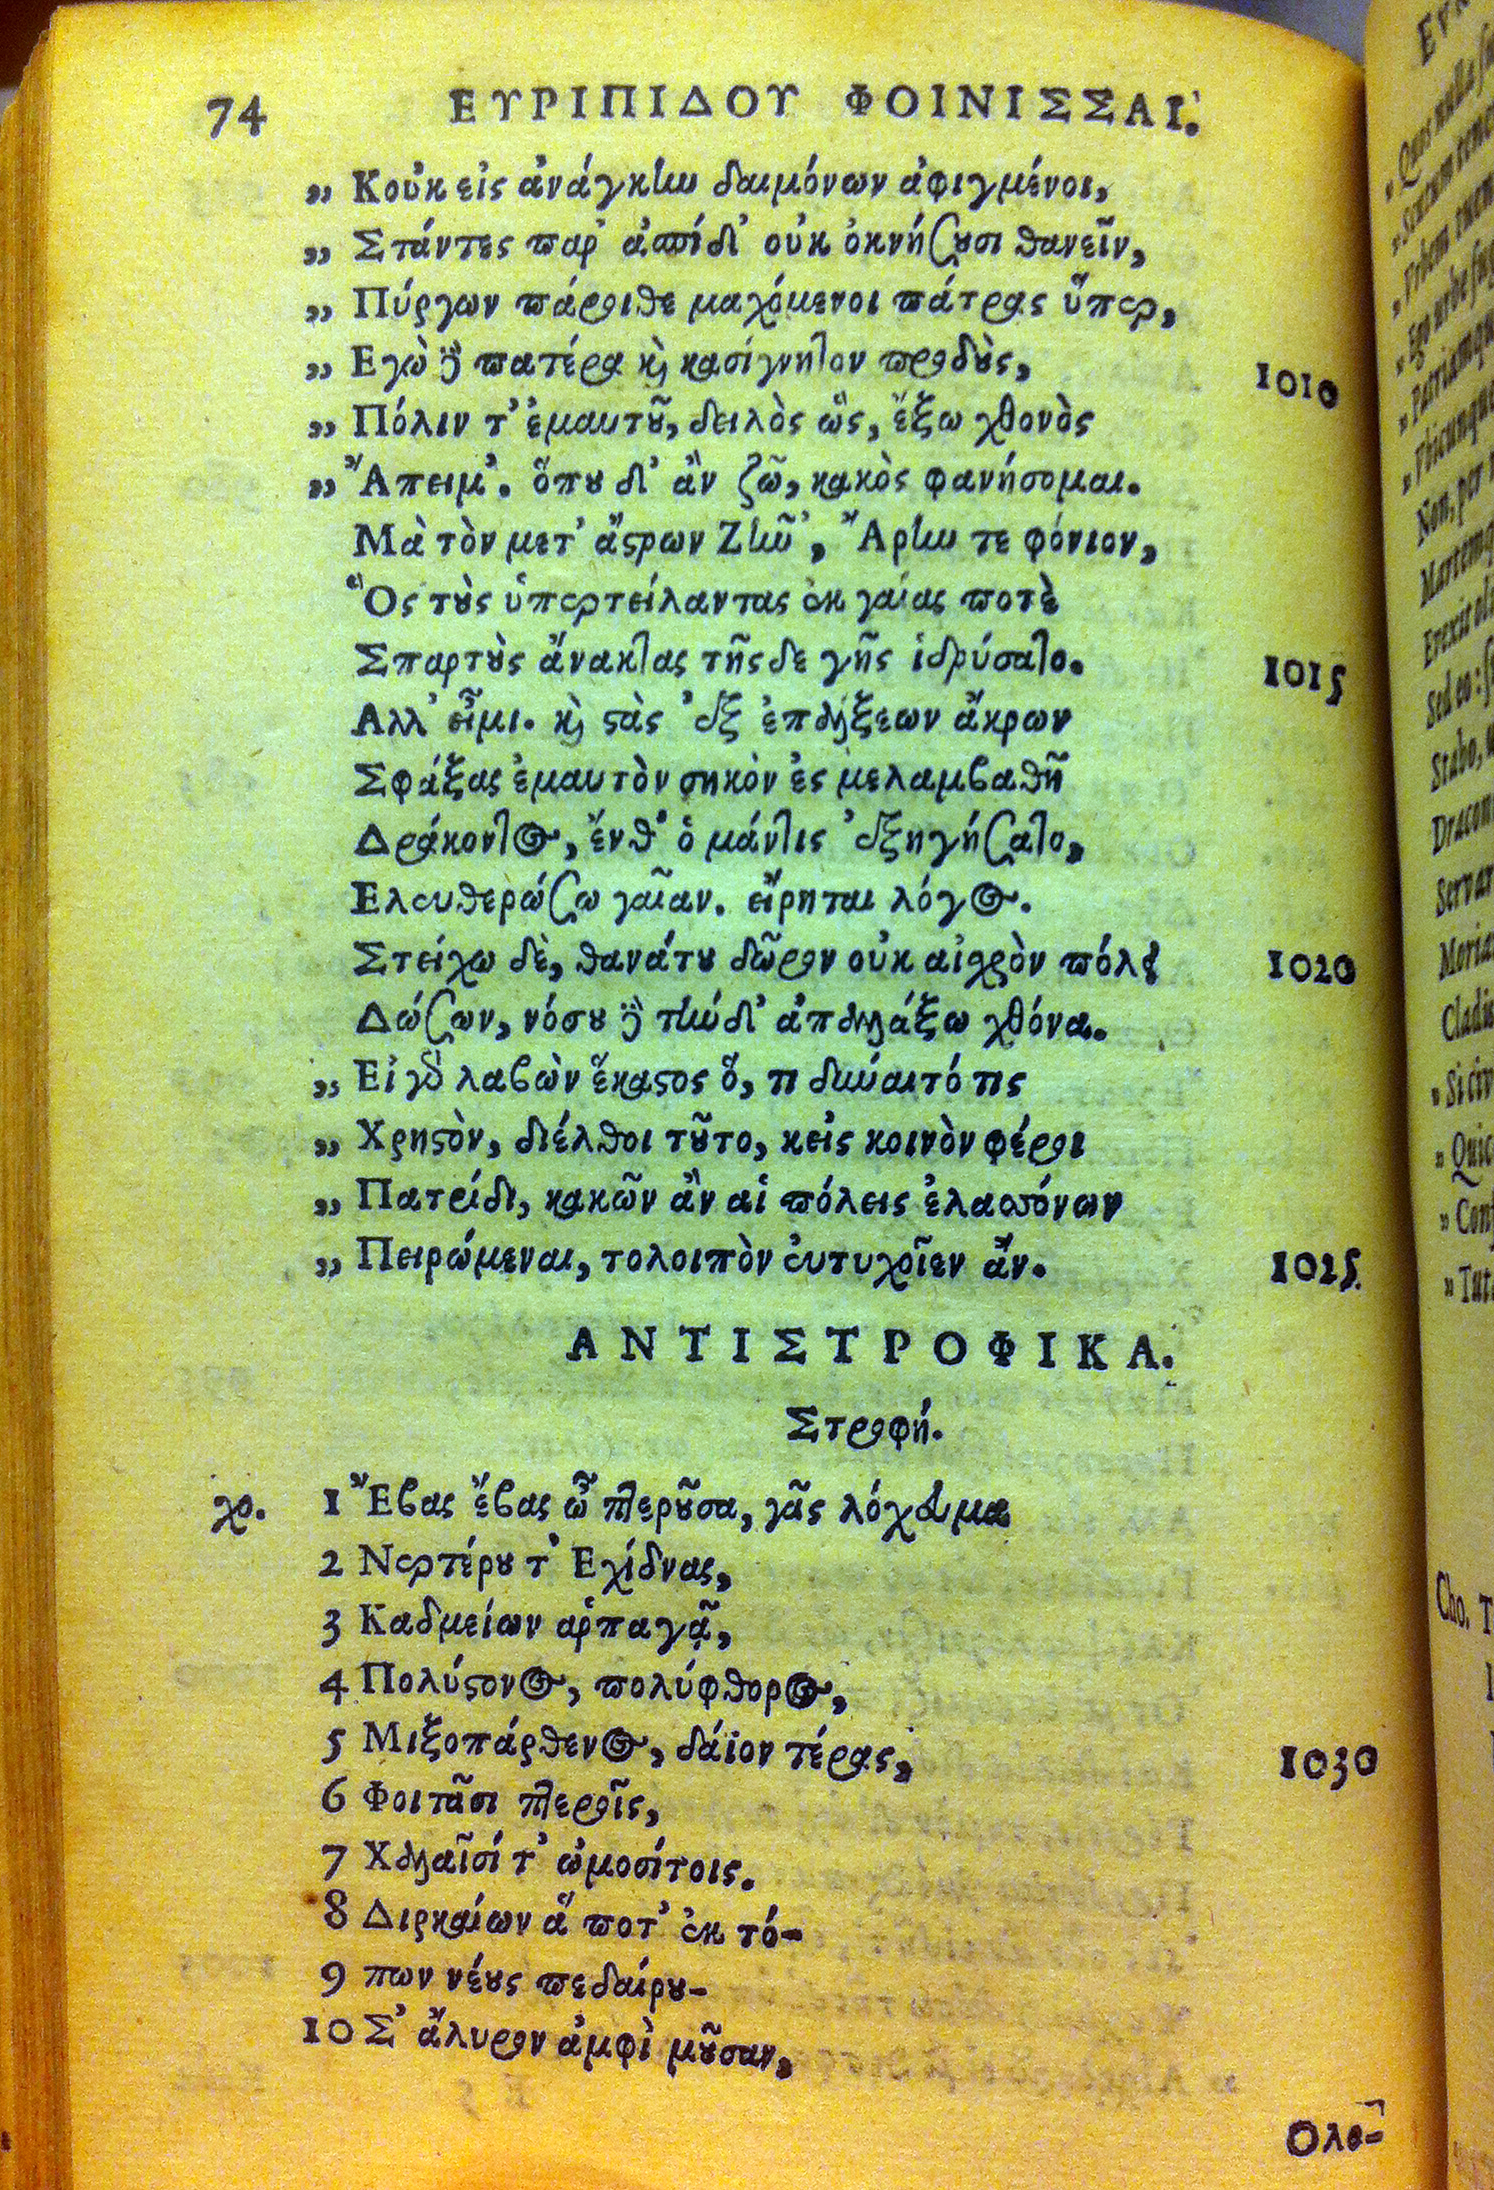 74 ΕΥΡΙΠΙΔΟΥ ΦΟΙΝΙΣΣΑΙ.
„ Κοὐκ εἰς ἀνάγκην δαιμόνων ἀφιγμένοι,
„ Στάντες παρ' ἀσπίδ' οὐκ ὀκνήσουσι θανεῖν,
„ Πύργων πάροιθε μαχόμενοι πάτρας ὕπερ,
„ Εγὼ δὲ πατέρα καὶ κασίγνητον προδοὺς, 1010
„ Πόλιν τ' ἐμαυτοῦ, δειλὸς ὣς, ἔξω χθονὸς
„ Ἄπειμ'. ὅπου δ' ἂν ζῶ, κακὸς φανήσομαι.
Μὰ τὸν μετ' ἄστρων Ζῆν', Ἄρην τε φόνιον,
Ὃς τοὺς ὑπερτείλαντας ἐκ γαίας ποτὲ
Σπαρτοὺς ἄνακτας τῆς δε γῆς ἱδρύσατο. 1015
Αλλ' εἶμι. καὶ στὰς 'ξ ἐπάλξεων ἄκρων
Σφάξας ἐμαυτὸν σηκὸν ἐς μελαμβαθῆ
Δράκοντος, ἔνθ' ὁ μάντις 'ξηγήσατο,
Ελευθερώσω γαῖαν. εἴρηται λόγος.
Στείχω δὲ, θανάτου δῶρον οὐκ αἰσχρὸν πόλει 1020
Δώσων, νόσου δὲ τήνδ' ἀπαλλάξω χθόνα.
„ Εἰ γὸ λαβὼν ἕκαστος ὅ, τι δύναιτό τις
„ Χρηστὸν, διέλθοι τοῦτο, κεἰς κοινὸν φέροι
„ Πατρίδι, κακῶν ἂν αἱ πόλεις ἐλασσόνων
„ Πειρώμεναι, τολοιπὸν εὐτυχοῖεν ἄν. 1025
ΑΝΤΙΣΤΡΟΦΙΚΑ.
Στροφή.
χο. 1 Ἔβας ἔβας ὦ πτεροῦσα, γᾶς λόχευμα
2 Νερτέρου τ' Εχίδνας,
3 Καδμείων ἁρπαγᾷ,
4 Πολύστονος, πολύφθορος,
5 Μιξοπάρθενος, δάϊον τέρας, 1030
6 Φοιτᾶσι πτεροῖς,
7 Χαλαῖσί τ' ὠμοσίτοις.
8 Διρκαίων ἅ ποτ' ἐκ τό-
9 πων νέους πεδαίρου-
10 Σ' ἄλυρον ἀμφὶ μοῦσαν,
Ολο-